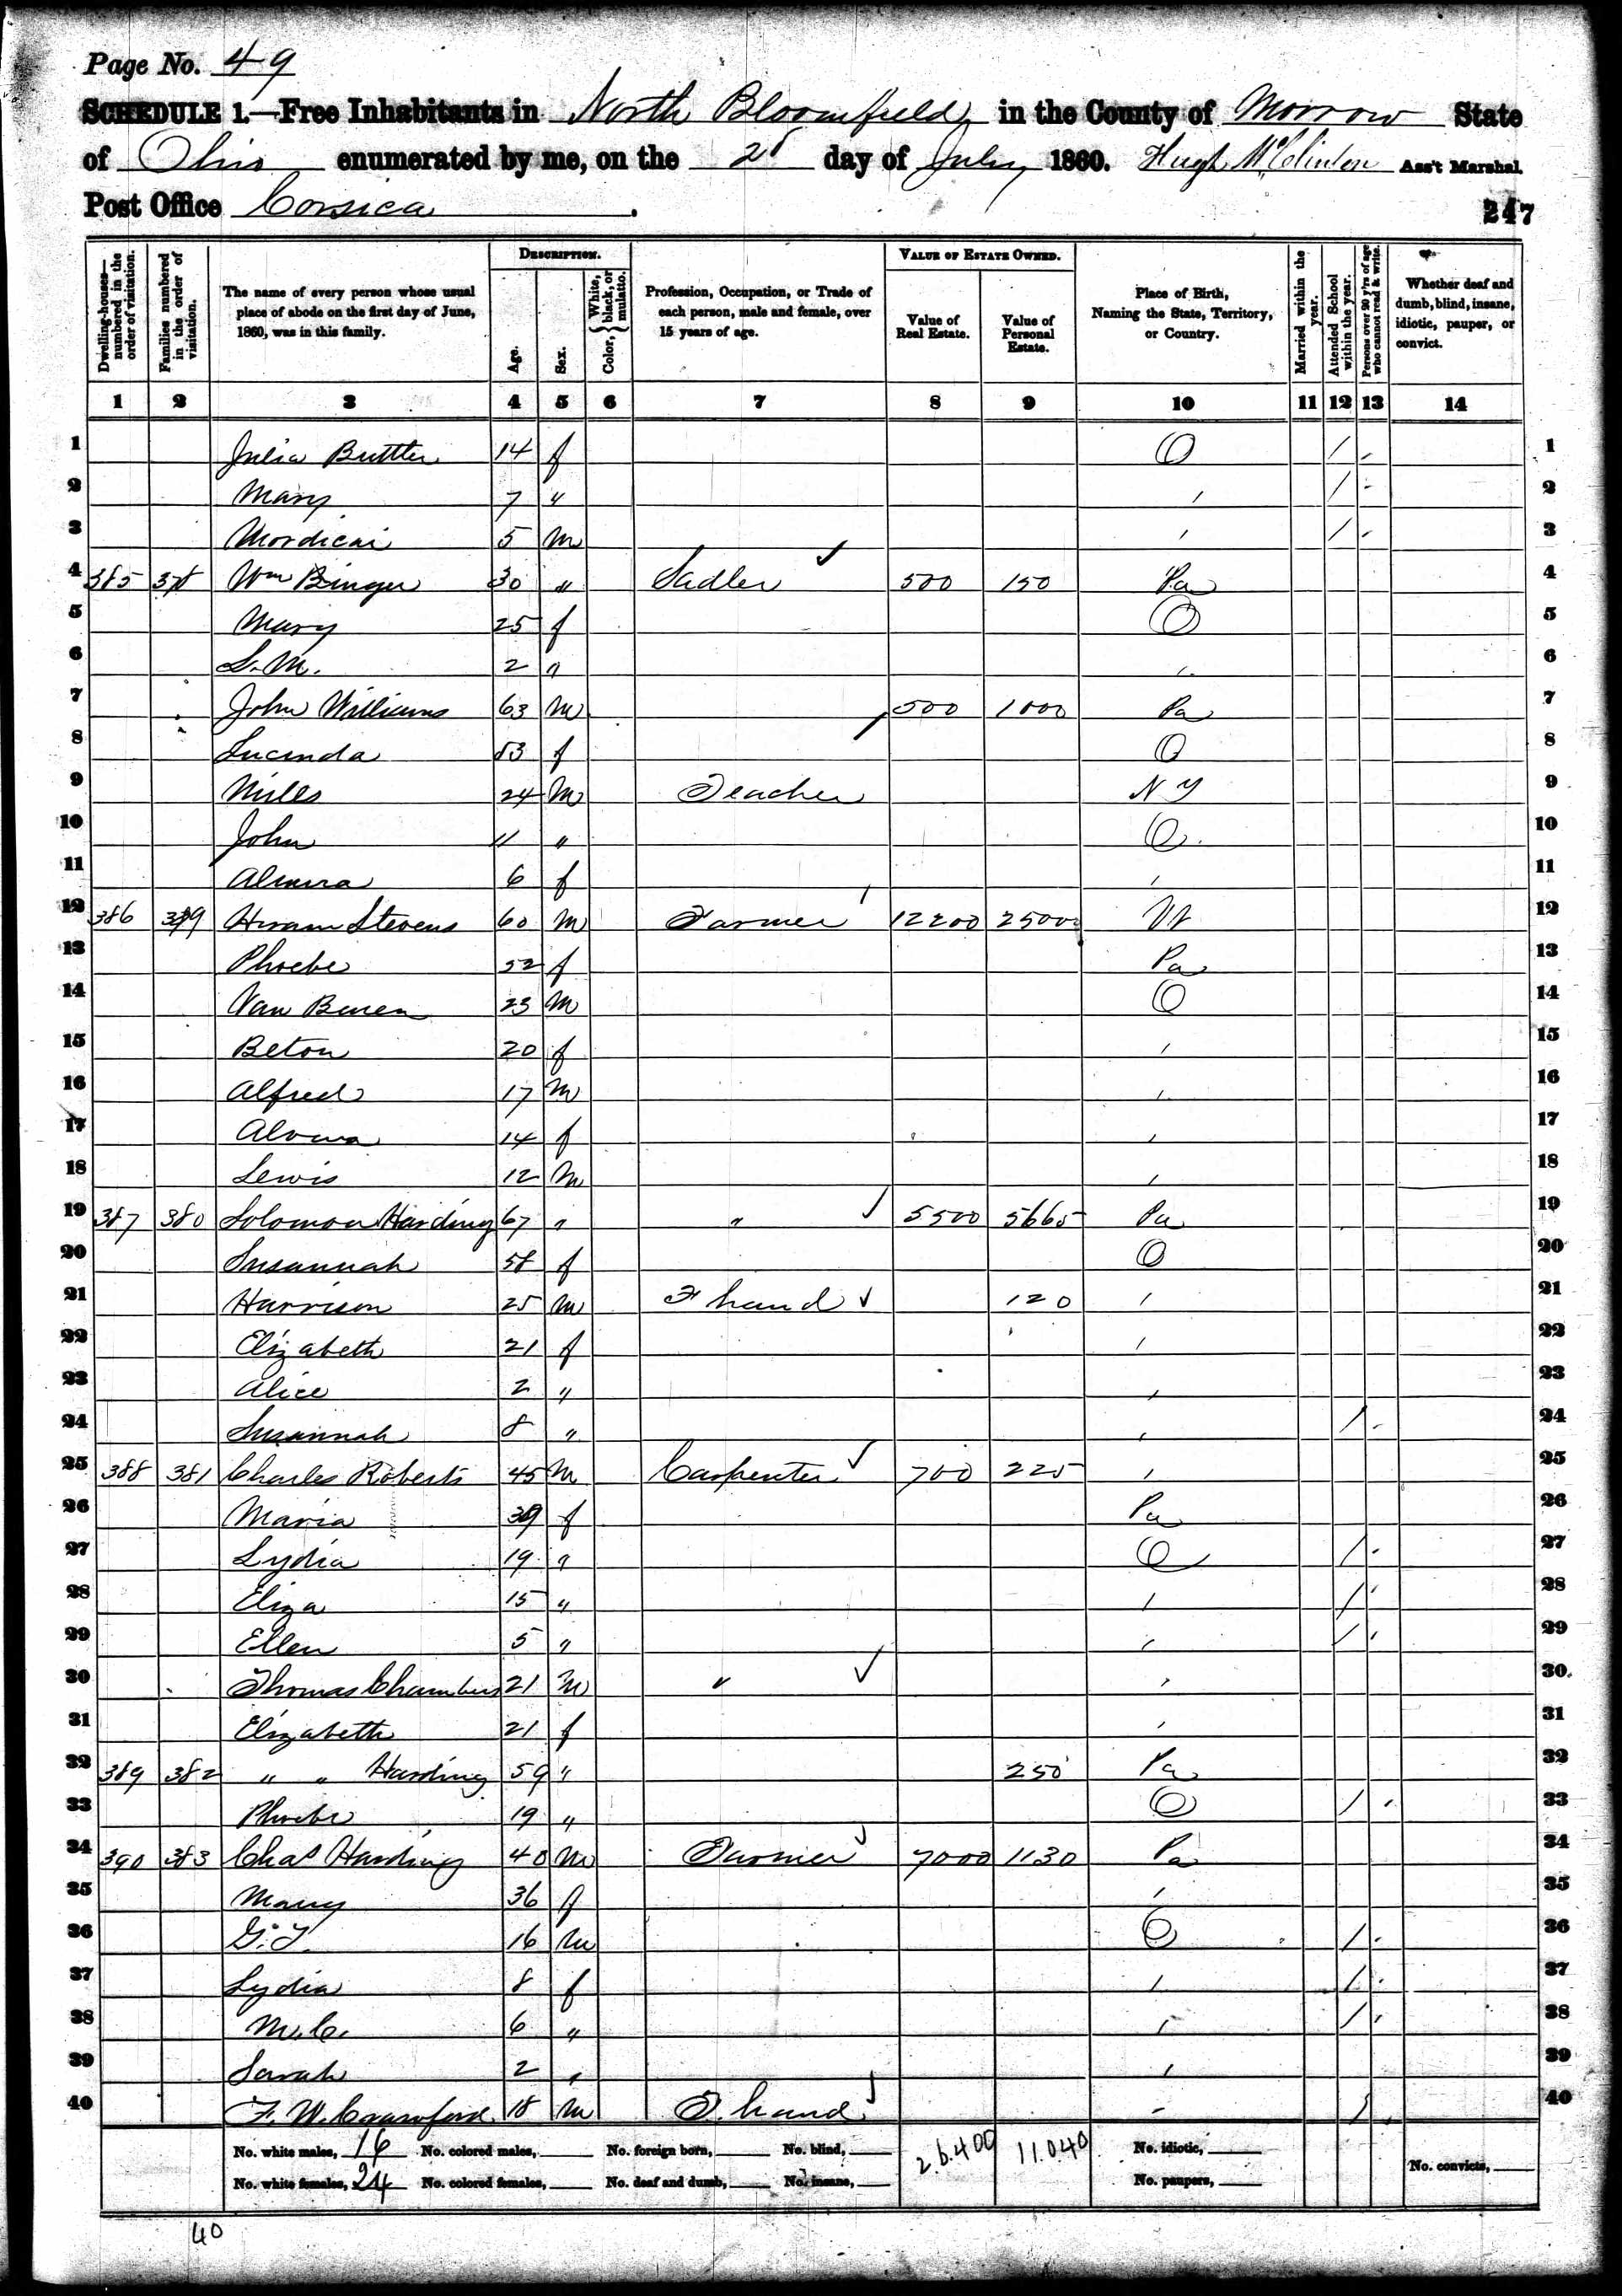 Page No. 49
SCHEDULE 1.—Free Inhabitants in North Bloomfield in the County of Morrow State
of Ohio enumerated by me, on the 2d day of July 1860. Hugh McClinton Ass't Marshal.
Post Office Corsica . 247
Dwelling-houses—numbered in the order of visitation. Families numbered in the order of visitation. The name of every person whose usual place of abode on the first day of June, 1860, was in this family. DESCRIPTION. Age. Sex. Color, White, black, or mulatto. Profession, Occupation, or Trade of each person, male and female, over 15 years of age. VALUE OF ESTATE OWNED. Value of Real Estate. Value of Personal Estate. Place of Birth, Naming the State, Territory, or Country. Married within the year. Attended School within the year. Persons over 20 y'rs of age who cannot read & write. Whether deaf and dumb, blind, insane, idiotic, pauper, or convict.
1 2 3 4 5 6 7 8 9 10 11 12 13 14
1 Julia Buttler 14 f O / 1
2 Mary 7 " / / 2
3 Mordicai 5 m / / 3
4 385 378 Wm Binger 30 " Sadler 500 150 Pa 4
5 Mary 25 f O 5
6 S. M. 2 " 6
7 John Williams 63 m 500 1000 Pa 7
8 Lucinda 53 f O 8
9 Miles 24 m Teacher N Y 9
10 John 11 " O 10
11 Almira 6 f / 11
12 386 379 Hiram Stevens 60 m Farmer 12200 2500 Vt 12
13 Phoebe 52 f Pa 13
14 Van Buren 23 m O 14
15 20 f / 15
16 Alfred 17 m / 16
17 14 f / 17
18 Lewis 12 m / 18
19 387 380 Solomon Harding 67 " " 5500 5665 Pa 19
20 Susannah 58 f O 20
21 Harrison 25 m F hand 120 / 21
22 Elizabeth 21 f / 22
23 Alice 2 " / 23
24 Susannah 8 " / / 24
25 388 381 Charles Roberts 45 m Carpenter 700 225 / 25
26 Maria 39 f Pa 26
27 Lydia 19 " O / 27
28 Eliza 15 " / / 28
29 Ellen 5 " / / 29
30 Thomas Chambers 21 m " / 30
31 Elizabeth 21 f / 31
32 389 382 " " Harding 59 " 250 Pa 32
33 Phoebe 19 " O / 33
34 390 383 Chas Harding 40 m Farmer 7000 1130 Pa 34
35 Mary 36 f / 35
36 G. T. 16 m O / 36
37 Lydia 8 f / / 37
38 M. C. 6 " / / 38
39 Sarah 2 " / 39
40 F. W. Crawford 18 m F. hand / 40
No. white males, 16 No. colored males, No. foreign born, No. blind, 26.400 11.040 No. idiotic,
No. white females, 24 No. colored females, No. deaf and dumb, No. insane, No. paupers, No. convicts,
40